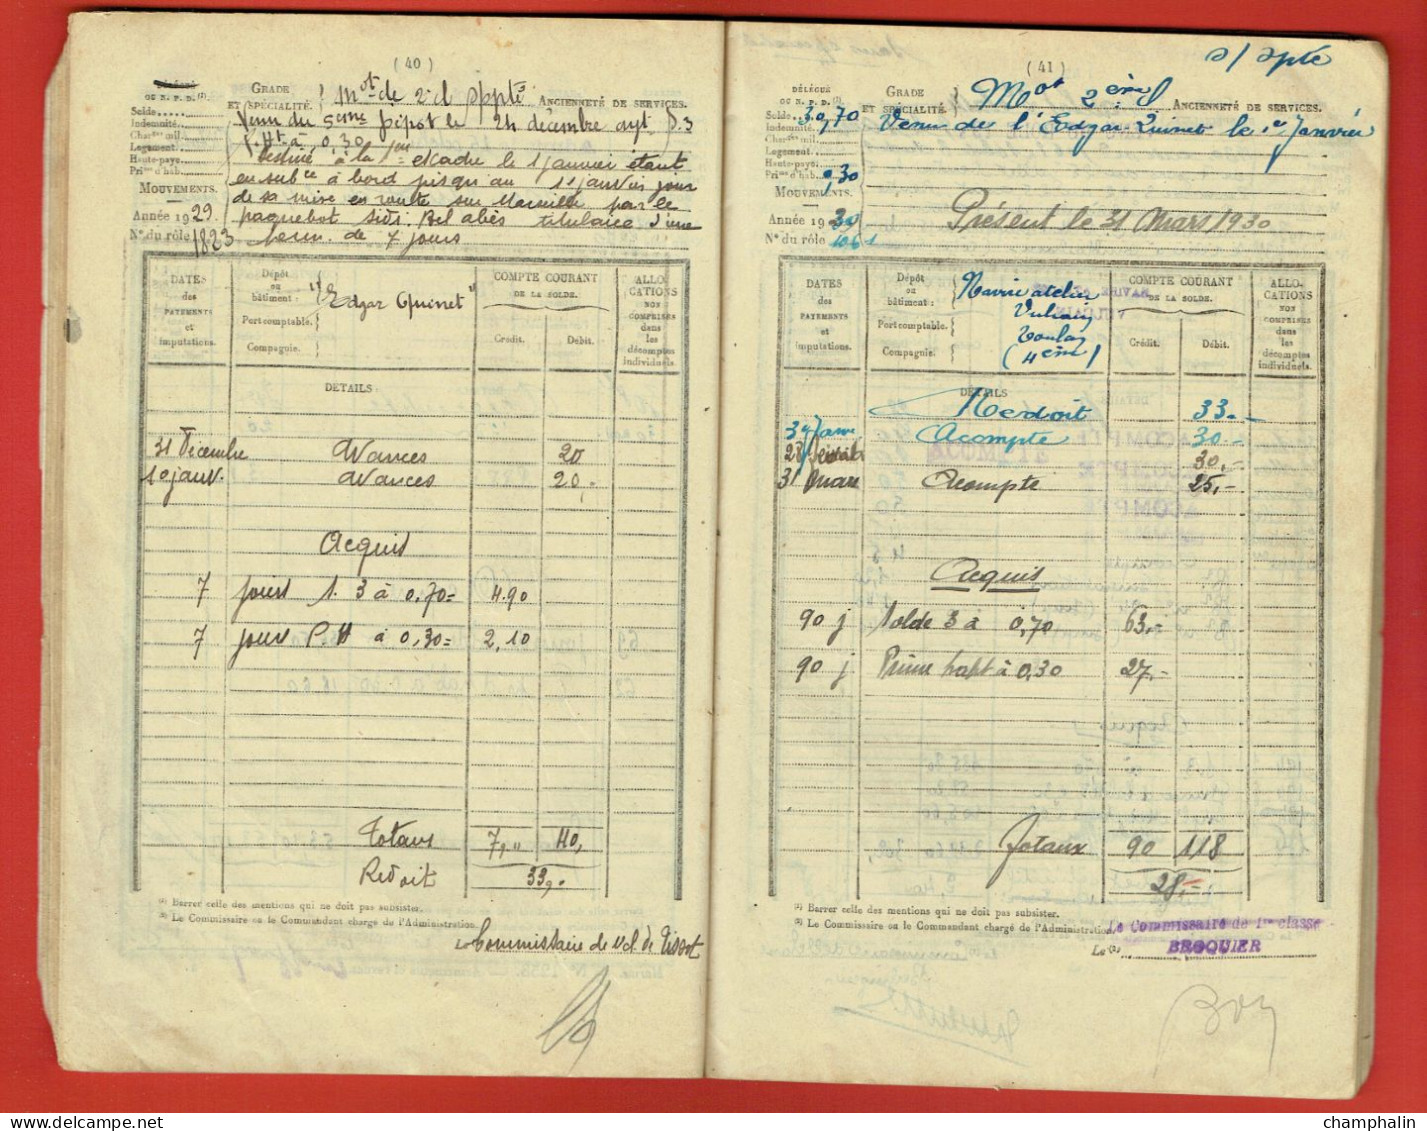 ( 40 )
DÉLÉGUÉ
OU N. P. D. (1).
Solde
Indemnité
Char ces mil.
Logement
Haute-paye
Pri mes d'hab.
MOUVEMENTS.
Année 1929.
N° du rôle 1823
GRADE
ET SPÉCIALITÉ.
Mot de 2 cl
ANCIENNETÉ DE SERVICES.
Venu du 5ème Dépôt le 24 décembre S.3
P. Ht à 0,30
Destiné à la escadre le 1 janvier étant
en sub ce à bord jusqu'au 11 janvier jour
de sa mise en route sur Marseille par le
paquebot Sidi Bel Abès titulaire d'une
perm. de 7 jours
DATES
des
PAYEMENTS
et
imputations.
Dépôt
ou
bâtiment :
"Edgar Quinet"
Port comptable.
Compagnie.
COMPTE COURANT
DE LA SOLDE.
Crédit.
Débit.
ALLO-
CATIONS
NON
COMPRISES
dans
les
décomptes
individuels.
DÉTAILS
31 Décembre Avances 20
10 janv. Avances 20,-
Acquis
7 jours S. 3 à 0,70= 4.90
7 jours P.H à 0,30= 2,10
Totaux 7," 40,
Redoit 33,-
(1) Barrer celle des mentions qui ne doit pas subsister.
(2) Le Commissaire ou le Commandant chargé de l'Administration.
Le Commissaire de
( 41 )
DÉLÉGUÉ
OU N. P. D. (1).
Solde 3 0,70
Indemnité
Char ces mil.
Logement
Haute-paye
Pri mes d'hab. 0,30
MOUVEMENTS.
Année 1930
N° du rôle 1061
GRADE
ET SPÉCIALITÉ.
Mot 2ème cl
ANCIENNETÉ DE SERVICES.
Venu de l'Edgar-Quinet le 1er Janvier
Présent le 31 Mars 1930
DATES
des
PAYEMENTS
et
imputations.
Dépôt
ou
bâtiment :
Navire atelier
Vulcain
Port comptable.
Toulon
Compagnie.
(4ème)
COMPTE COURANT
DE LA SOLDE.
Crédit.
Débit.
ALLO-
CATIONS
NON
COMPRISES
dans
les
décomptes
individuels.
DÉTAILS
Redoit 33.-
Acompte 30.-
30,-
31 Mars Acompte 25,-
Acquis
90 j Solde 3 à 0,70 63,-
90 j Prime habt à 0,30 27,-
Totaux 90 118
28,-
(1) Barrer celle des mentions qui ne doit pas subsister.
(2) Le Commissaire ou le Commandant chargé de l'Administration.
Le Commissaire de 1re classe
Le (2)
BROQUIER
champhalin